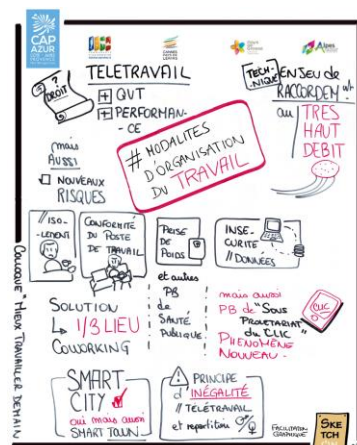 CAP
AZUR
TELETRAVAIL
? DROIT
+ QVT
+ PERFORMAN-
CE
TECH-
NIQUE
ENJEU DE
RACCORDEMt
au TRES
HAUT
DEBIT
# MODALITES
D'ORGANISATION
DU TRAVAIL
mais
AUSSI
NOUVEAUX
RISQUES
// ISO-
LEMENT
CONFORMITÉ
DU POSTE
DE TRAVAIL
PRISE
DE
POIDS
INSE-
CURITE
// DONNÉES
SOLUTION
1/3 LIEU
COWORKING
et autres
PB
de
SANTÉ
PUBLIQUE
mais aussi
PB de "SOUS
PROLETARIAT
DU CLIC"
PHENOMÈNE
NOUVEAU.
CLIC
SMART
CITY
oui mais aussi
SMART TOWN
! PRINCIPE
d'INÉGALITÉ
// TÉLÉTRAVAIL
et repartition
COLLOQUE "MIEUX TRAVAILLER DEMAIN
FACILITATION
GRAPHIQUE
SKE
TCH